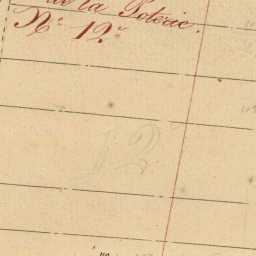 de la Poterie.
N.º 12.º
12